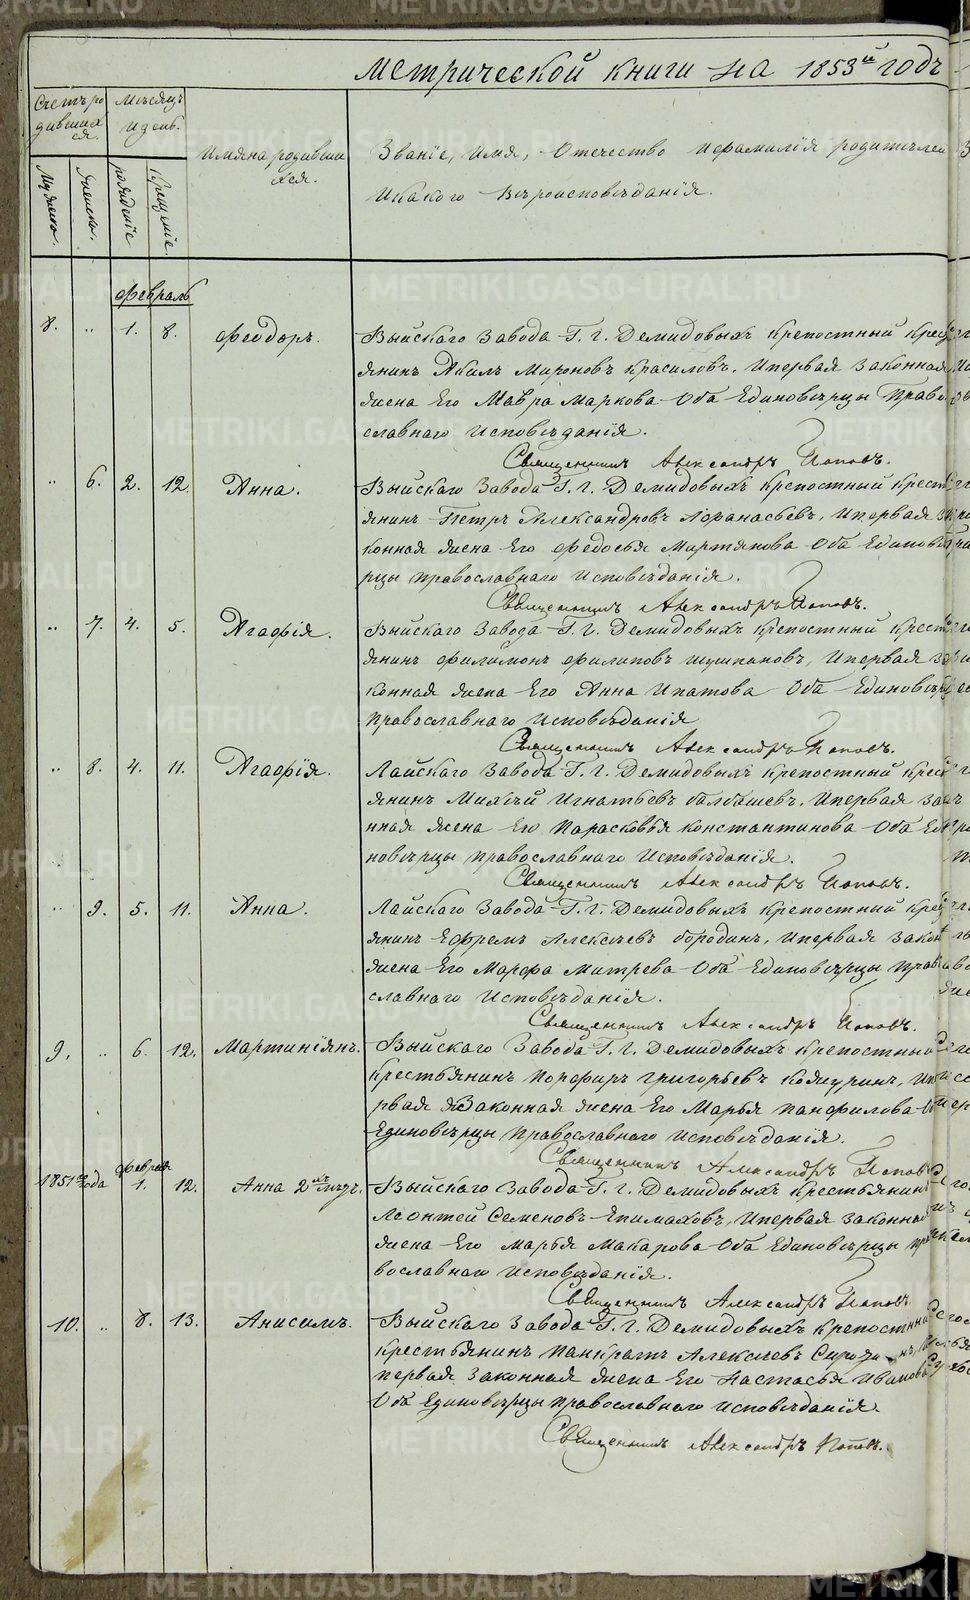 Метрической книги на 1853й годъ
Счетъ ро
дивших
ся.
Месяцъ
и день.
Имяна родивши
хся.
Званіе, Имя, Отечество и фамилія родителей
и какого Вѣроисповѣданія.
Мужеска.
Женска.
рожденіе
Крещеніе
Февраль
8. " 1. 8. Феодоръ. Выйскаго Завода Г. Г. Демидовыхъ крепостный кресть
янинъ Акилъ Мироновъ Красиловъ, и первая законная
жена Его Мавра Маркова Оба Единовѣрцы Право
славнаго Исповѣданія.
Священникъ Александръ Поповъ.
" 6. 2. 12. Анна. Выйскаго Завода Г. Г. Демидовыхъ крепостный кресть
янинъ Петръ Александровъ Афанасьевъ, и первая за
конная жена Его Федосья Мартянова Оба Единовѣ
рцы православнаго Исповѣданія.
Священникъ Александръ Поповъ.
" 7. 4. 5. Агафія. Выйскаго Завода Г. Г. Демидовыхъ крепостный кресть
янинъ Филимонъ Филиповъ, и первая за
конная жена Его Анна Ипатова Оба Единовѣрцы
Православнаго Исповѣданія
Священникъ Александръ Поповъ.
" 8. 4. 11. Агафія. Лайскаго Завода Г. Г. Демидовыхъ крепостный крест
янинъ Михей Игнатьевъ Балбашевъ, и первая зако
нная жена Его Парасковья Константинова Оба Еди
новѣрцы православнаго Исповѣданія.
Священникъ Александръ Поповъ.
" 9. 5. 11. Анна. Лайскаго Завода Г. Г. Демидовыхъ крепостный крест
янинъ Ефремъ Алексѣевъ Бородинъ, и первая закон
жена Его Марфа Митрева Оба Единовѣрцы Прав
славнаго Исповѣданія.
Священникъ Александръ Поповъ.
9. " 6. 12. Мартиніянъ. Выйскаго Завода Г. Г. Демидовыхъ крепостный
крестьянинъ Порфиръ Григорьевъ Кожуринъ, и пе
рвая законная жена Его Марья Панфилова Оба
Единовѣрцы Православнаго Исповѣданія.
Священникъ Александръ Поповъ
1851го года февраля 1. 12. Анна Выйскаго Завода Г. Г. Демидовыхъ крестьянинъ
Леонтей Семеновъ Епимаховъ, и первая законная
жена Его Марья Макарова Оба Единовѣрцы пра
вославнаго исповѣданія.
Священникъ Александръ Поповъ.
10. " 8. 13. Анисимъ. Выйскаго Завода Г. Г. Демидовыхъ крепостный
крестьянинъ Панкратъ Алексѣевъ
первая законная жена Его Настасья Иванова
Оба Единовѣрцы Православнаго исповѣданія.
Священникъ Александръ Поповъ.
METRIKI.GASO-URAL.RU